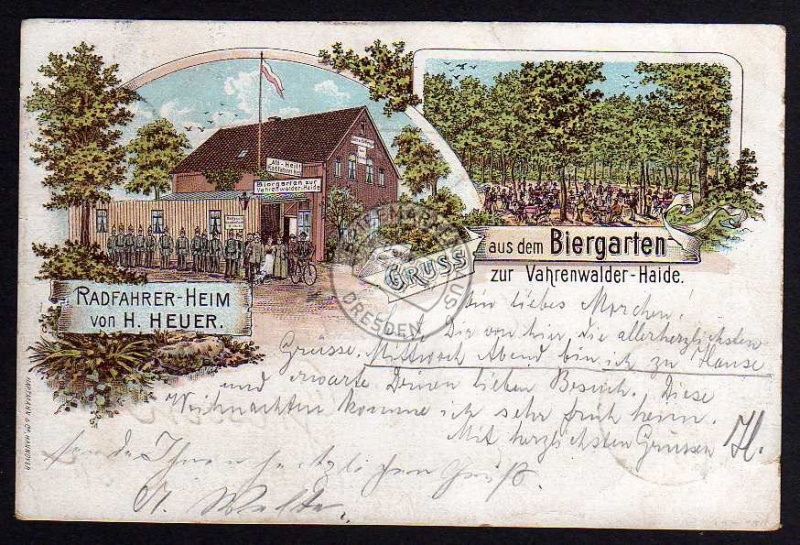 All Heil!
Biergarten zur
Vahrenwalder-Haide
RADFAHRER-HEIM
VON H. HEUER.
GRUSS
aus dem Biergarten
zur Vahrenwalder-Haide.
Mein liebes
Die von hier, die allerherzlichsten
Grüsse. Mittwoch Abend bin ich zu Hause
und erwarte Deinen lieben Besuch. Diese
Weihnachten komme ich sehr früh heim.
Mit herzlichsten Grüssen H.
sendet Ihnen herzlichen Gruß.
DRESDEN
HANNOVER